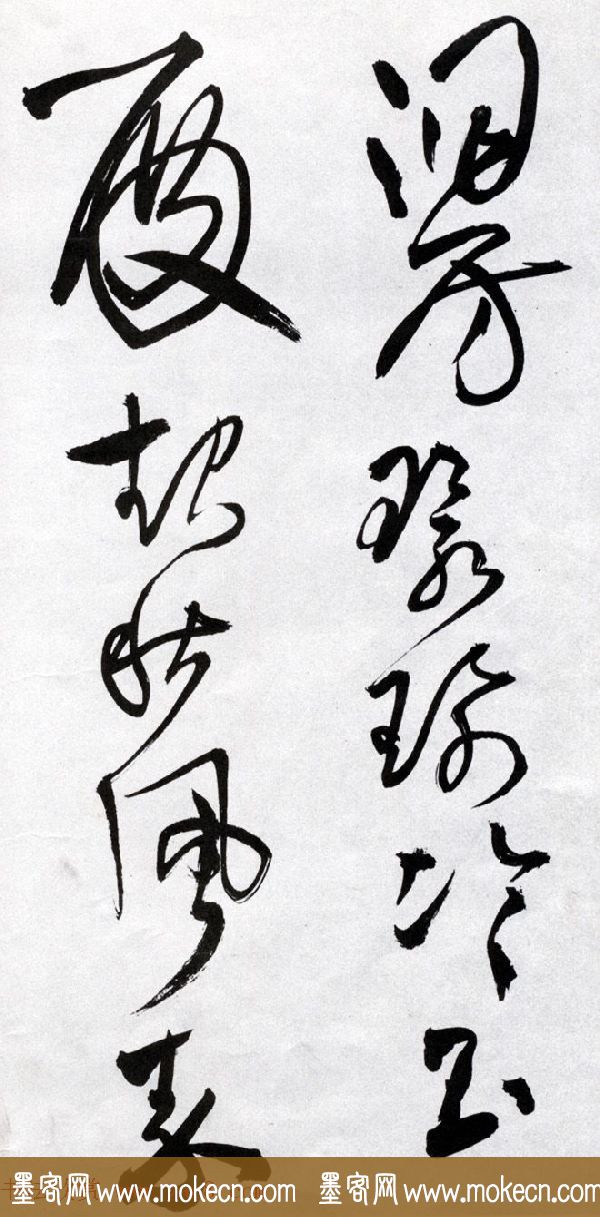 洞房環珮冷玉
殿起秋風秦
墨客网www.mokecn.com 墨客网www.mokecn.com